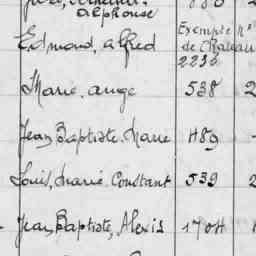 Alphonse
Edmond, Alfred Exempté N°
de Chateau
2230
Marie. ange 538
Jean Baptiste. Marie 489
Louis, Marie. Constant 539
Jean Baptiste, Alexis 1704